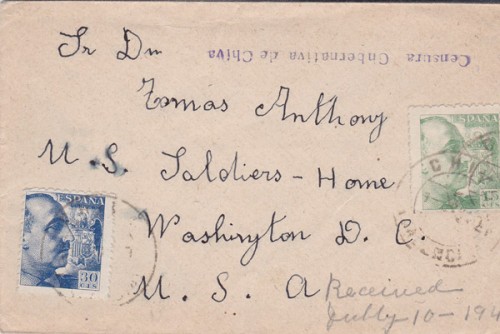 Sr Dn
Censura Gubernativa de Chiva
Tomas Anthony
U. S. Soldiers - Home
Washington D. C.
U. S. A
Received
July 10 - 194
ESPAÑA
30
CTS
ESPAÑA